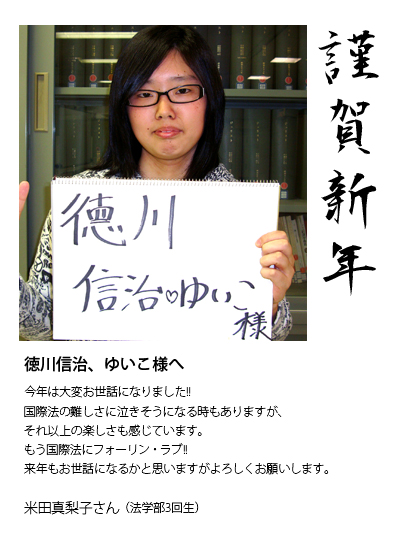 謹賀新年
徳川
信治♡ゆいこ
様
徳川信治、ゆいこ様へ
今年は大変お世話になりました!!
国際法の難しさに泣きそうになる時もありますが、
それ以上の楽しさも感じています。
もう国際法にフォーリン・ラブ!!
来年もお世話になるかと思いますがよろしくお願いします。
米田真梨子さん（法学部3回生）